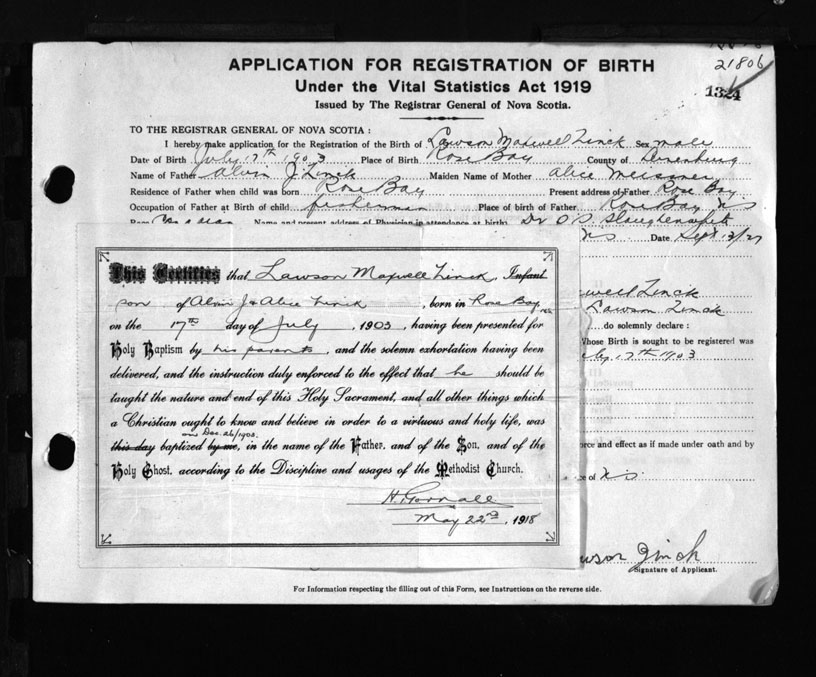 21806
1324
APPLICATION FOR REGISTRATION OF BIRTH
Under the Vital Statistics Act 1919
Issued by The Registrar General of Nova Scotia.
TO THE REGISTRAR GENERAL OF NOVA SCOTIA :
I hereby make application for the Registration of the Birth of Lawson Maxwell Zinck Sex male
Date of Birth July 17th 1903 Place of Birth Rose Bay County of Lunenburg
Name of Father Alvin J. Zinck Maiden Name of Mother Alice Meisner
Residence of Father when child was born Rose Bay Present address of Father Rose Bay
Occupation of Father at Birth of child fisherman Place of birth of Father Rose Bay N S
Name and present address of Physician in attendance at birth) Dr O. S.
N S Date Sept 12/27
This Certifies that Lawson Maxwell Zinck, Infant
son of Alvin J & Alice Zinck, born in Rose Bay, N.S.
on the 17th day of July, 1903, having been presented for
Holy Baptism by his parents, and the solemn exhortation having been
delivered, and the instruction duly enforced to the effect that he should be
taught the nature and end of this Holy Sacrament, and all other things which
a Christian ought to know and believe in order to a virtuous and holy life, was
on Dec. 26/1903.
this day baptized by me, in the name of the Father, and of the Son, and of the
Holy Ghost, according to the Discipline and usages of the Methodist Church.
May 22nd, 1918
well Zinck
Lawson Zinck
do solemnly declare :
Whose Birth is sought to be registered was
17th 1903
orce and effect as if made under oath and by
ce of N S
wson Zinck
Signature of Applicant.
For Information respecting the filling out of this Form, see Instructions on the reverse side.